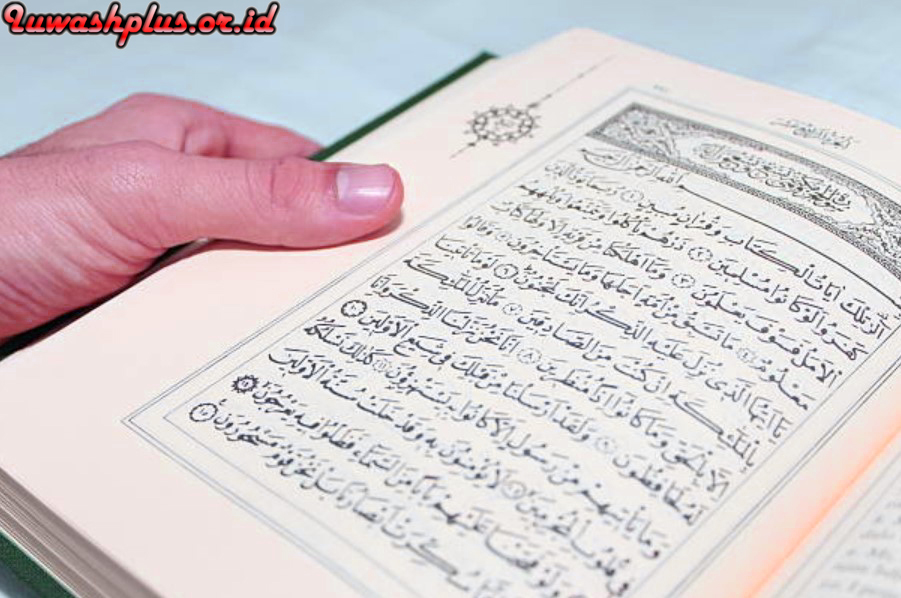 Iuwashplus.or.id
بِسْمِ اللهِ الرَّحْمٰنِ الرَّحِيمِ
الٓرٰ تِلْكَ اٰيَاتُ الْكِتَابِ وَقُرْاٰنٍ مُبِينٍ ١ رُبَمَا يَوَدُّ الَّذِينَ
كَفَرُوا لَوْ كَانُوا مُسْلِمِينَ ٢ ذَرْهُمْ يَأْكُلُوا وَيَتَمَتَّعُوا وَيُلْهِهِمُ
الْاَمَلُ فَسَوْفَ يَعْلَمُونَ ٣ وَمَا اَهْلَكْنَا مِنْ قَرْيَةٍ اِلَّا وَلَهَا كِتَابٌ
مَعْلُومٌ ٤ مَا تَسْبِقُ مِنْ اُمَّةٍ اَجَلَهَا وَمَا يَسْتَأْخِرُونَ ٥ وَقَالُوا
يَا اَيُّهَا الَّذِي نُزِّلَ عَلَيْهِ الذِّكْرُ اِنَّكَ لَمَجْنُونٌ ٦ لَوْ مَا تَأْتِينَا
بِالْمَلٰئِكَةِ اِنْ كُنْتَ مِنَ الصَّادِقِينَ ٧ مَا نُنَزِّلُ الْمَلٰئِكَةَ
اِلَّا بِالْحَقِّ وَمَا كَانُوا اِذًا مُنْظَرِينَ ٨ اِنَّا نَحْنُ نَزَّلْنَا الذِّكْرَ وَاِنَّا
لَهُ لَحَافِظُونَ ٩ وَلَقَدْ اَرْسَلْنَا مِنْ قَبْلِكَ فِي شِيَعِ الْاَوَّلِينَ ١٠
وَمَا يَأْتِيهِمْ مِنْ رَسُولٍ اِلَّا كَانُوا بِهِ يَسْتَهْزِؤُنَ ١١ كَذٰلِكَ نَسْلُكُهُ
فِي قُلُوبِ الْمُجْرِمِينَ ١٢ لَا يُؤْمِنُونَ بِهِ وَقَدْ خَلَتْ سُنَّةُ الْاَوَّلِينَ ١٣
وَلَوْ فَتَحْنَا عَلَيْهِمْ بَابًا مِنَ السَّمَاءِ فَظَلُّوا فِيهِ يَعْرُجُونَ ١٤
سُكِّرَتْ اَبْصَارُنَا بَلْ نَحْنُ قَوْمٌ مَسْحُورُونَ ١٥